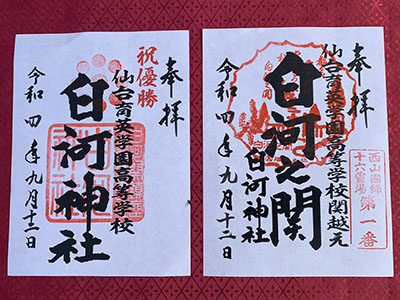 奉拝
祝優勝
仙台育英学園高等学校
白河神社
令和四年九月十二日
奉拝
仙台育英学園高等学校関越え
白河之関
白河神社
令和四年九月十二日
西山國師
十六霊場
第一番